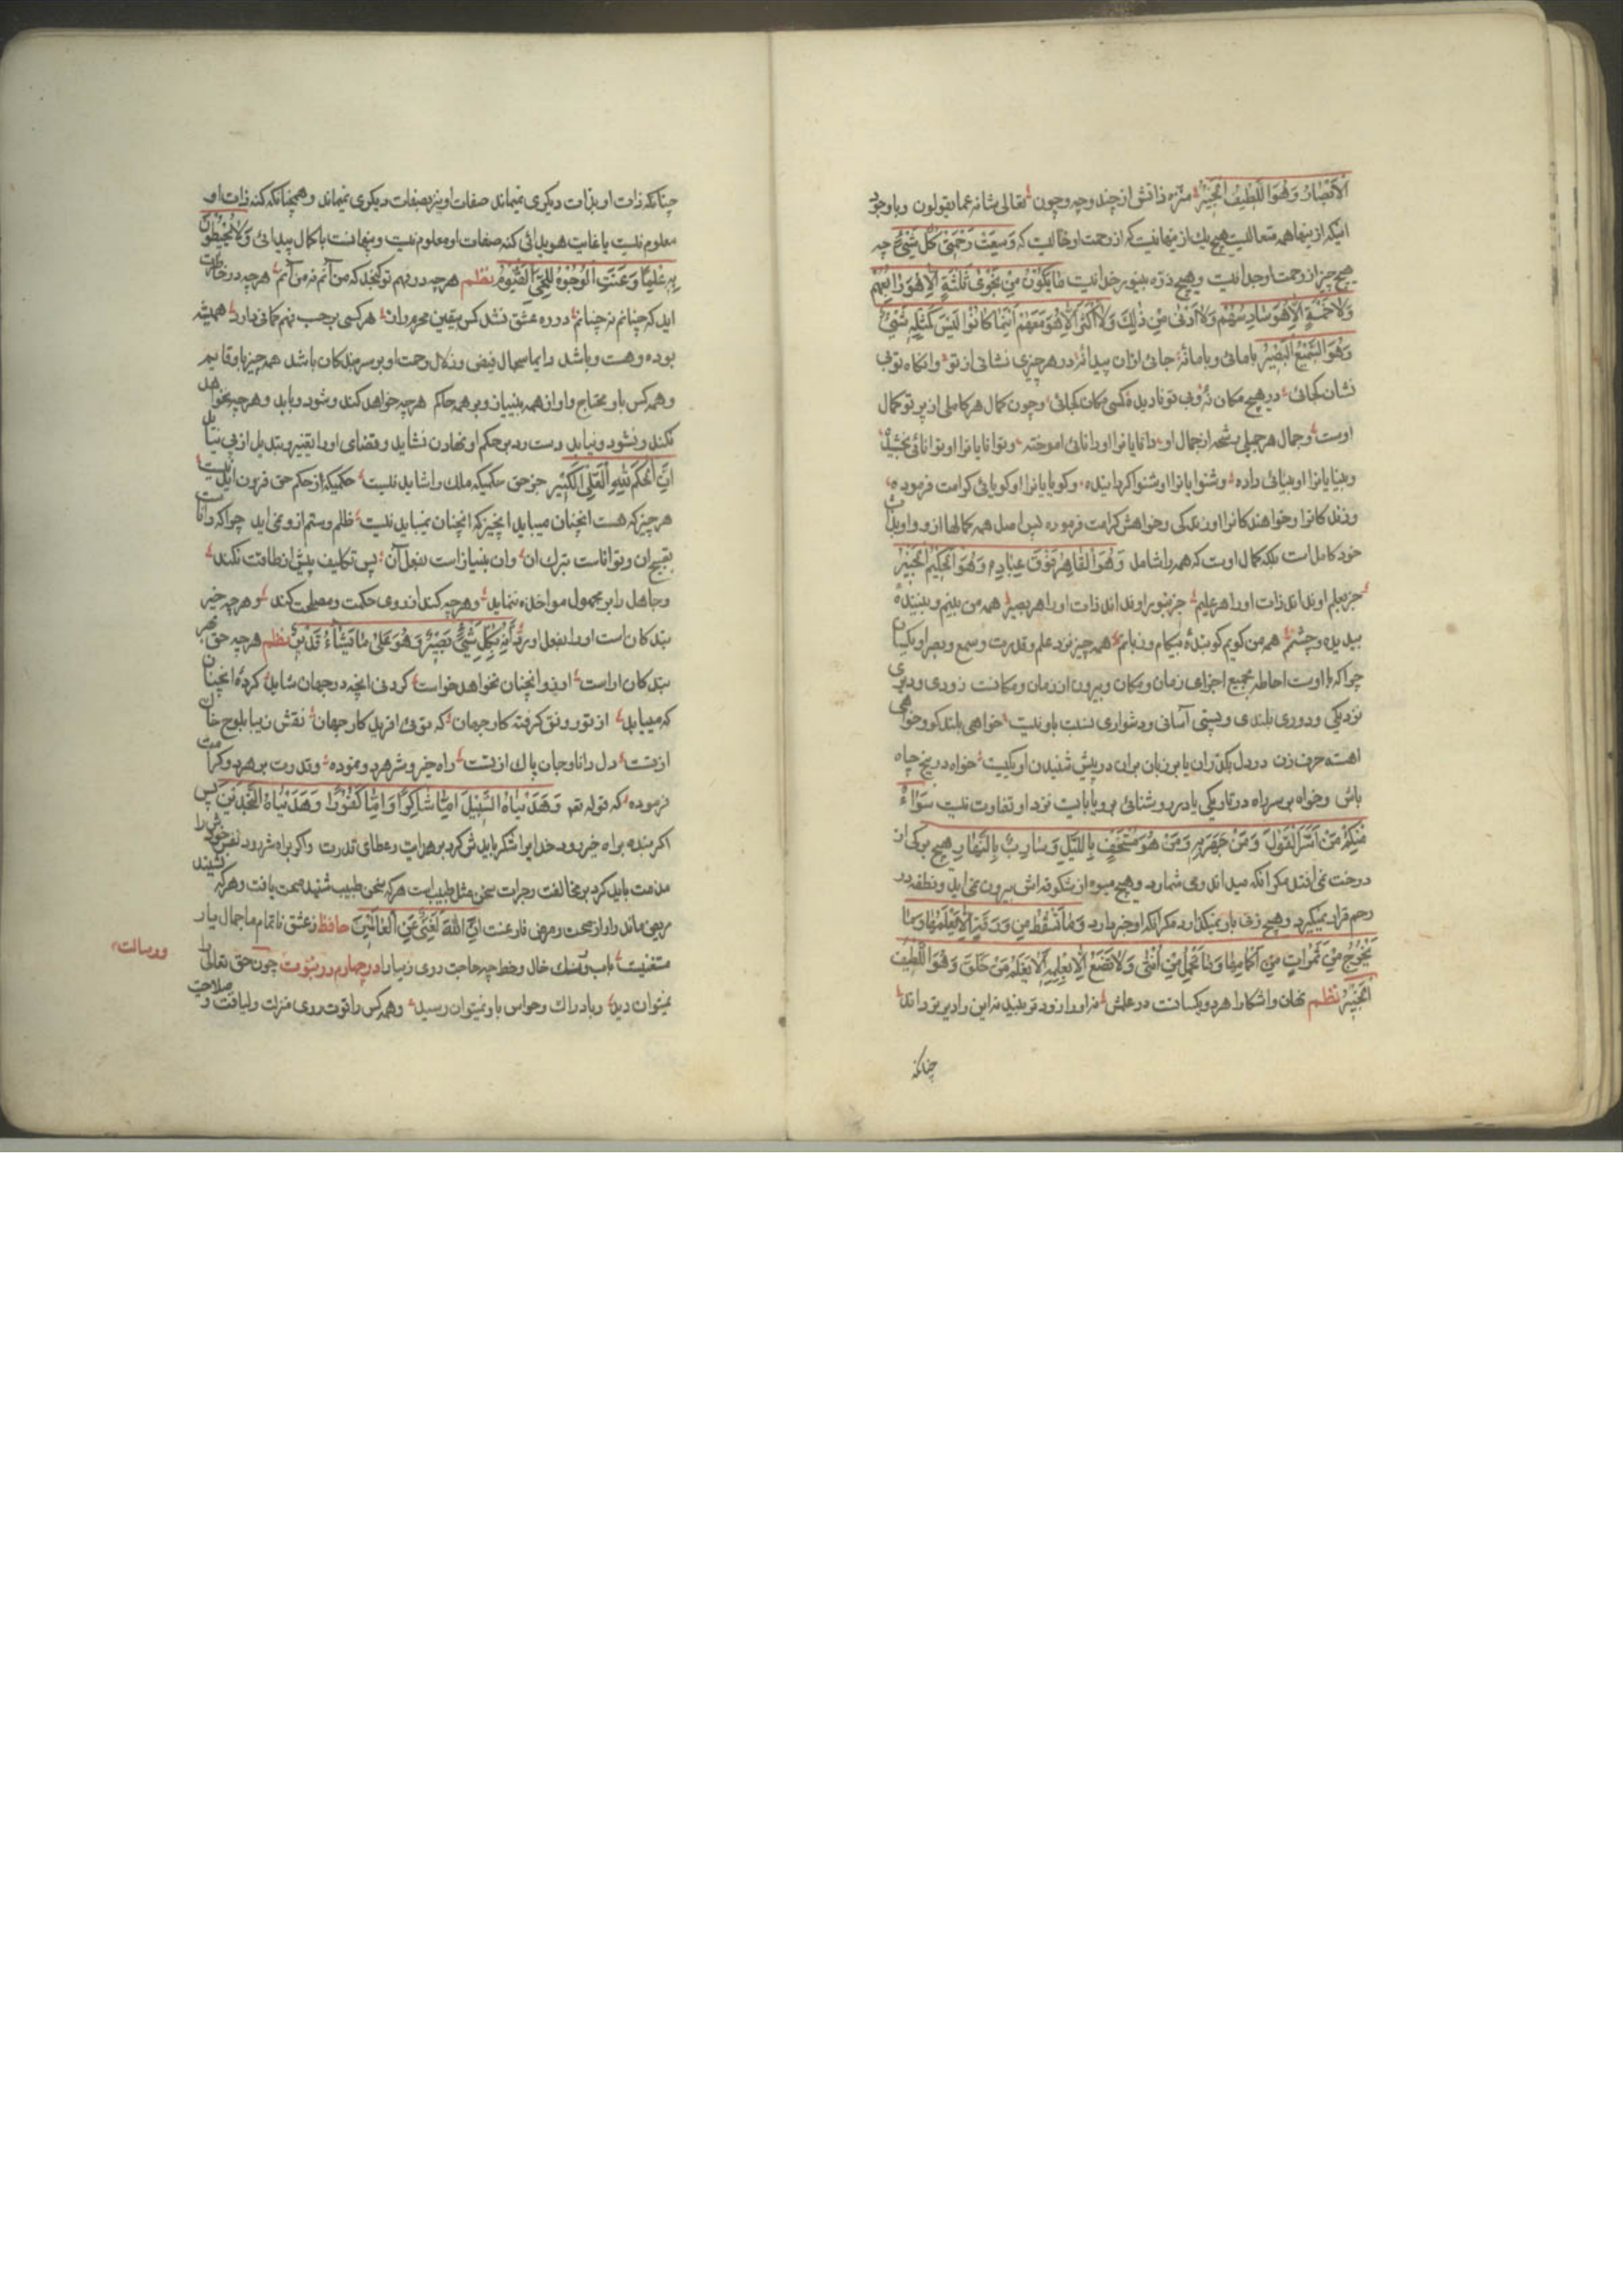 الأبصار وهو اللطيف الخبير منزه ذاتش از چند و چه و چون تعالی شانه عما یقولون و با وجود
اینکه از ینها همه متعالیست هیچ یك از ینها نیست که از رحمت او خالیست که وسعت رحمتی کل شیئ چه
هیچ چیز از رحمت او جدا نیست و هیچ ذره بینور خدا نیست ما یکون من نجوی ثلثة الا هو رابعهم
ولا خمسة الا هو سادسهم ولا ادنی من ذلك ولا اکثر الا هو معهم اینما کانوا لیس کمثله شیئ
وهو السمیع البصیر با مائی و با ما نۀ جائی ازان پیدا نۀ در هر چیزی نشانی از تو وانکاه تو بی
نشان کجائی در هیچ مکان نۀ و بی تو نادیده کسی مکان کجائی وچون کمال هر کاملی از پرتو کمال
اوست و جمال هر جمیلی رشحه از جمال او دانایانرا او دانائی اموخته و توانایانرا او توانائی بخشیده
و بینایانرا او بینائی داده و شنوایانرا او شنوا کردانیده و کویایانرا او کویائی کرامت فرموده
و زندکانرا و خواهندکانرا او زندکی و خواهش کرامت فرموده پس اصل همه کمالها ازو و او بذات
خود کامل است بلکه کمال اوست که همه را شامل وهو القاهر فوق عباده وهو الحکیم الخبیر
جز بعلم او نداند ذات او را هر علیم جز بنور او نداند ذات او را هر بصیر همه من بینم و بیننده
بیدیده و چشم همه من کویم کوینده بیکام و زبانم همه چیز نزد علم و قدرت و سمع و بصر او یکسان
چرا که با اوست احاطه بجمیع اجزای زمان و مکان و بیرون از زمان و مکانست زودی و دیری
نزدیکی و دوری بلندی و پستی آسانی و دشواری نسبت باو نیست خواهی بلند کو و خواهی
اهسته حرف زن در دل بکذران یا بر زبان بران در پیش شنیدن او یکیست خواه در بیخ چاه
باش و خواه بر سر راه در تاریکی یا در روشنائی برو یا بایست نزد او تفاوت نیست سواء
منکم من اسر القول ومن جهر به ومن هو مستخف باللیل وسارب بالنهار هیچ برکی از
درخت نمی افتد مکر آنکه میداند و می شمارد و هیچ میوه از شکوفه اش بیرون نمی اید و نطفه در
رحم قرار نمیکیرد و هیچ زنی بار نمیکذارد مکر آنکه او خبر دارد وما تسقط من ورقة الا یعلمها وما
تخرج من ثمرات من اکمامها وما تحمل من انثی ولا تضع الا بعلمه الا یعلم من خلق وهو اللطیف
الخبیر نظم نهان و اشکارا هر دو یکسانست در علمش نه او را زود تر بیند نه این را دیر تر داند
چنانکه
چنانکه ذات او بذات دیکری نمیماند صفات او نیز بصفات دیکری نمیماند و همچنانکه کنه ذات او
معلوم نیست با غایت هویدائی کنه صفات او معلوم نیست و پنهانست با کمال پیدائی ولا یحیطون
به علما وعنت الوجوه للحی القیوم نظم هر چه در فهم تو کنجد که من آنم نه من آنم هر چه در خاطرت
اید که چنانم نه چنانم در ره عشق نشد کس بیقین محرم راز هر کسی بر حسب فهم کمانی دارد همیشه
بوده و هست و باشد دایما سحاب فیض و زلال رحمت او بر سر بندکان باشد همه چیز باو قایم
و همه کس باو محتاج و او از همه بینیاز و بر همه حاکم هر چه خواهد کند و شود و باید و هر چه نخواهد
نکند و نشود و نیاید دست رد بر حکم او نهادن نشاید و قضای او را تغییر و تبدیل از پی نیاید
ان الحکم لله العلی الکبیر جز حق حکمیکه ملك را شاید نیست حکمیکه از حکم حق فزون اید نیست
هر چیز که هست انچنان میباید انچیز که انچنان نمیباید نیست ظلم و ستم ازو نمی اید چرا که داناست
بقبح ان و تواناست بترك ان و ان بینیاز است بفعل آن پس تکلیف بیش از طاقت نکند
و جاهل را بر مجهول مواخذه ننماید و هر چه کند از روی حکمت و مصلحت کند و هر چه خیر
بندکان است او را بفعل اورد انه بکل شیئ بصیر وهو علی ما یشاء قدیر نظم هر چه حق بهر
بندکان اراست او نه و انچنان نخواهد خواست کرد نی انچه در جهان شاید کردۀ انچنان
که میباید از تو رونق کرفته کار جهان که توئی افریدکار جهان نقش زیبا بلوح خاك
از تست دل دانا و جان پاك از تست راه خیر و شر هر دو نموده و قدرت بر هر دو کرامت
فرموده که قوله تعـ وهدیناه السبیل اما شاکرا واما کفورا وهدیناه النجدین پس
اکر بنده براه خیر رود خدا یرا شکر باید ش کرد بر هدایت و عطای قدرت و اکر براه شر رود نفس خودش را
مذمت باید کرد بر مخالفت و جرات سخن مثل طبیب است هر که سخن طبیب شنید صحت یافت و هر که نشنید
مریض ماند و او از صحت و مرض فارغست ان الله لغنی عن العالمین حافظ ز عشق ناتمام ما جمال یار
مستغنیست بآب و رنك خال و خط چه حاجت روی زیبا را در چهارم در نبوت ورسالت چون حق تعالی را
نمیتوان دید و بادراك و حواس باو نمیتوان رسید و همه کس را قوت روی منزلت و لیاقت و صلاحیت